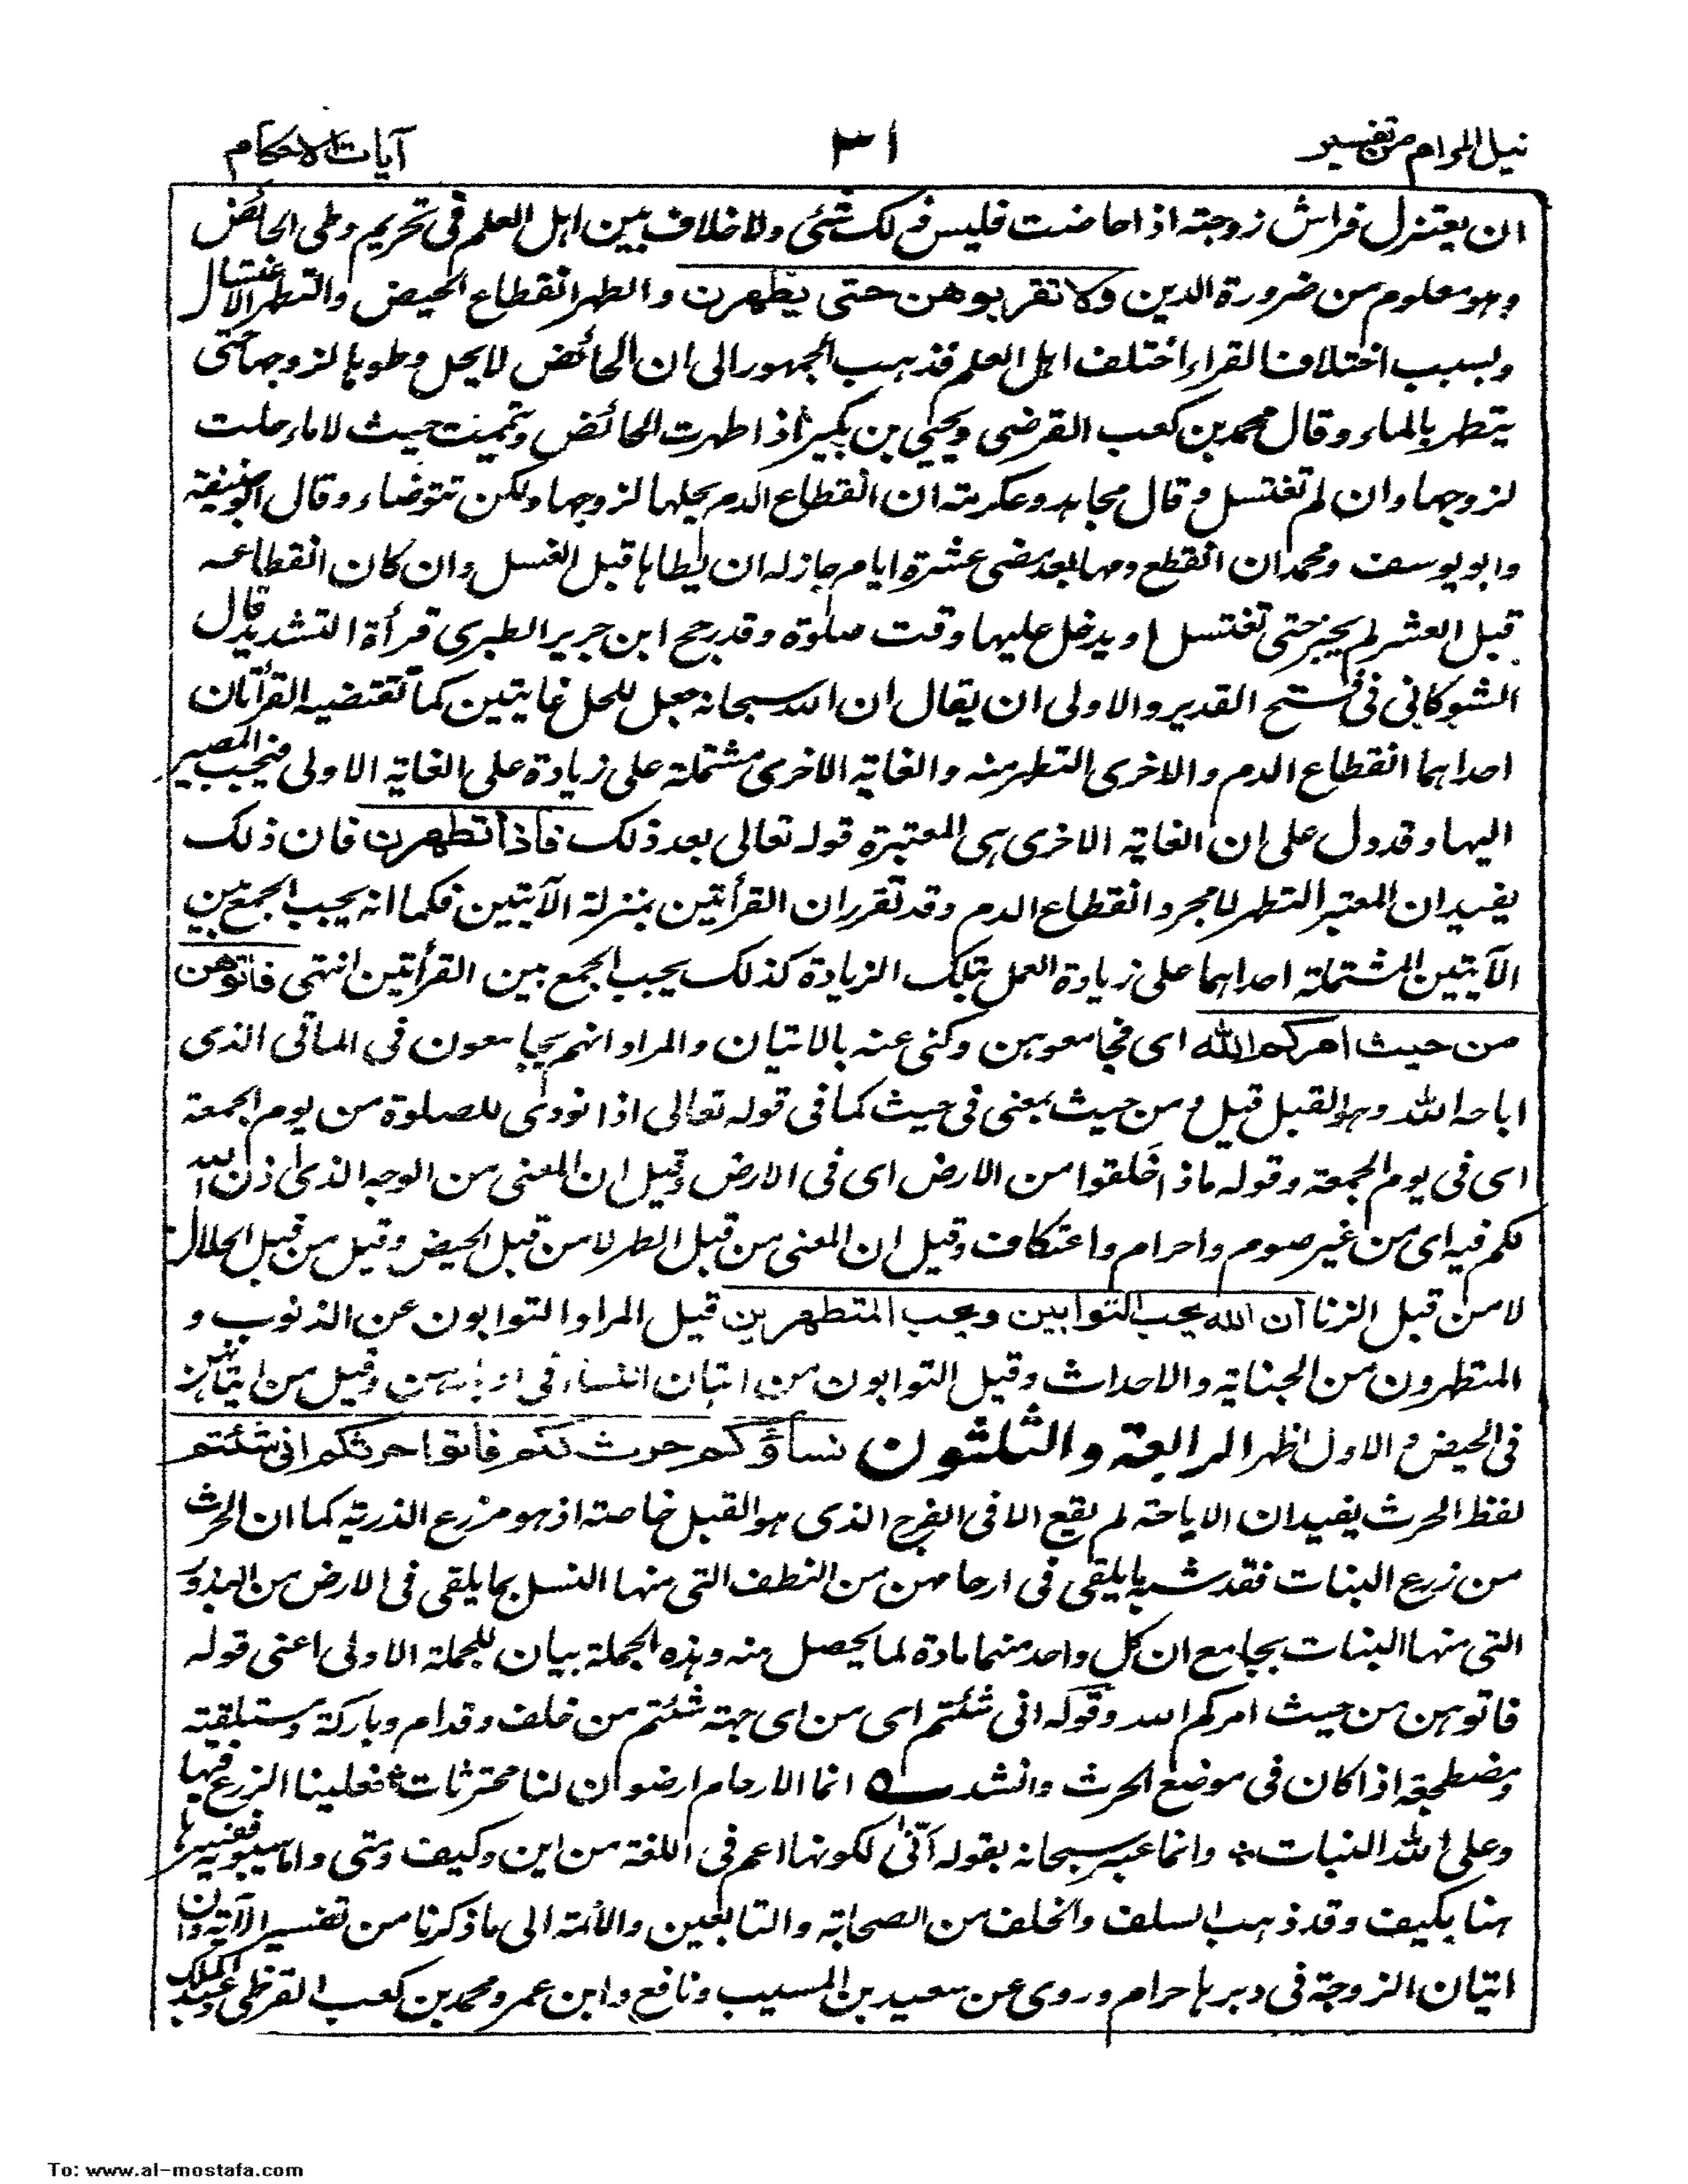 نيل المرام من تفسير
٣١
آيات الاحكام
ان يعتزل فراش زوجته اذا حاضت فليس ذلك بشئى ولا خلاف بين اهل العلم فى تحريم وطى الحائض
وهو معلوم من ضرورة الدين ولا تقربوهن حتى يطهرن والطهر انقطاع الحيض والتطهر الاغتسال
وبسبب اختلاف القراء اختلف اهل العلم فذهب الجمهور الى ان الحائض لا يحل وطوها لزوجها حتى
يتطهر بالماء وقال محمد بن كعب القرضى ويحيى بن بكير اذا طهرت الحائض وتيممت حيث لا ماء حلت
لزوجها وان لم تغتسل وقال مجاهد وعكرمة ان انقطاع الدم يحلها لزوجها ولكن تتوضاء وقال ابو حنيفة
وابو يوسف ومحمد ان انقطع دمها بعد مضى عشرة ايام جاز له ان يطاها قبل الغسل وان كان انقطاعه
قبل العشر لم يجز حتى تغتسل او يدخل عليها وقت صلوة وقد رجح ابن جرير الطبرى قرأة التشديد قال
الشوكانى فى فتح القدير والاولى ان يقال ان الله سبحانه جعل للحل غايتين كما تقتضيه القرأتان
احداهما انقطاع الدم والاخرى التطهر منه والغاية الاخرى مشتملة على زيادة على الغاية الاولى فيجب المصير
اليها وقد دل على ان الغاية الاخرى هى المعتبرة قوله تعالى بعد ذلك فاذا تطهرن فان ذلك
يفيد ان المعتبر التطهر لا مجرد انقطاع الدم وقد تقرر ان القرأتين بمنزلة الآيتين فكما انه يجب الجمع بين
الآيتين المشتملة احداهما على زيادة العمل بتلك الزيادة كذلك يجب الجمع بين القرأتين انتهى فاتوهن
من حيث امركم الله اى فجامعوهن وكنى عنه بالاتيان والمراد انهم يجامعون فى الماتى الذى
اباحه الله وهو القبل قيل و من حيث بمعنى فى حيث كما فى قوله تعالى اذا نودى للصلوة من يوم الجمعة
اى فى يوم الجمعة وقوله ماذا خلقوا من الارض اى فى الارض وقيل ان المعنى من الوجه الذى اذن الله
لكم فيه اى من غير صوم واحرام واعتكاف وقيل ان المعنى من قبل الطهر لا من قبل الحيض وقيل من قبل الحلال
لا من قبل الزنا ان الله يحب التوابين ويحب المتطهرين قيل المراد التوابون عن الذنوب و
المتطهرون من الجنابة والاحداث وقيل التوابون من اتيان النساء فى ادبارهن وقيل من اتيانهن
فى الحيض والاول اظهر الرابعة والثلثون نساؤكم حرث لكم فاتوا حرثكم انى شئتم
لفظ الحرث يفيد ان الاباحة لم يقع الا فى الفرج الذى هو القبل خاصة اذ هو مزرع الذرية كما ان الحرث
من زرع البنات فقد شبه ما يلقى فى ارحامهن من النطف التى منها النسل بما يلقى فى الارض من البذور
التى منها البنات بجامع ان كل واحد منهما مادة لما يحصل منه وهذه الجملة بيان للجملة الاولى اعنى قوله
فاتوهن من حيث امركم الله وقوله انى شئتم اى من اى جهة شئتم من خلف وقدام وباركة ومستلقية
ومضطجعة اذا كان فى موضع الحرث وانشد ؎ انما الارحام ارضو ان لنا محترثات ٭ فعلينا الزرع فيها
وعلى الله النبات ٭ وانما عبر سبحانه بقوله أنّى لكونها اعم فى اللغة من اين وكيف ومتى واما سيبويه ففسرها
هنا بكيف وقد ذهب السلف والخلف من الصحابة والتابعين والأئمة الى ما ذكرنا من تفسير الآية وان
اتيان الزوجة فى دبرها حرام وروى عن سعيد بن المسيب ونافع وابن عمر ومحمد بن كعب القرظى وعبد الملك
To: www.al-mostafa.com